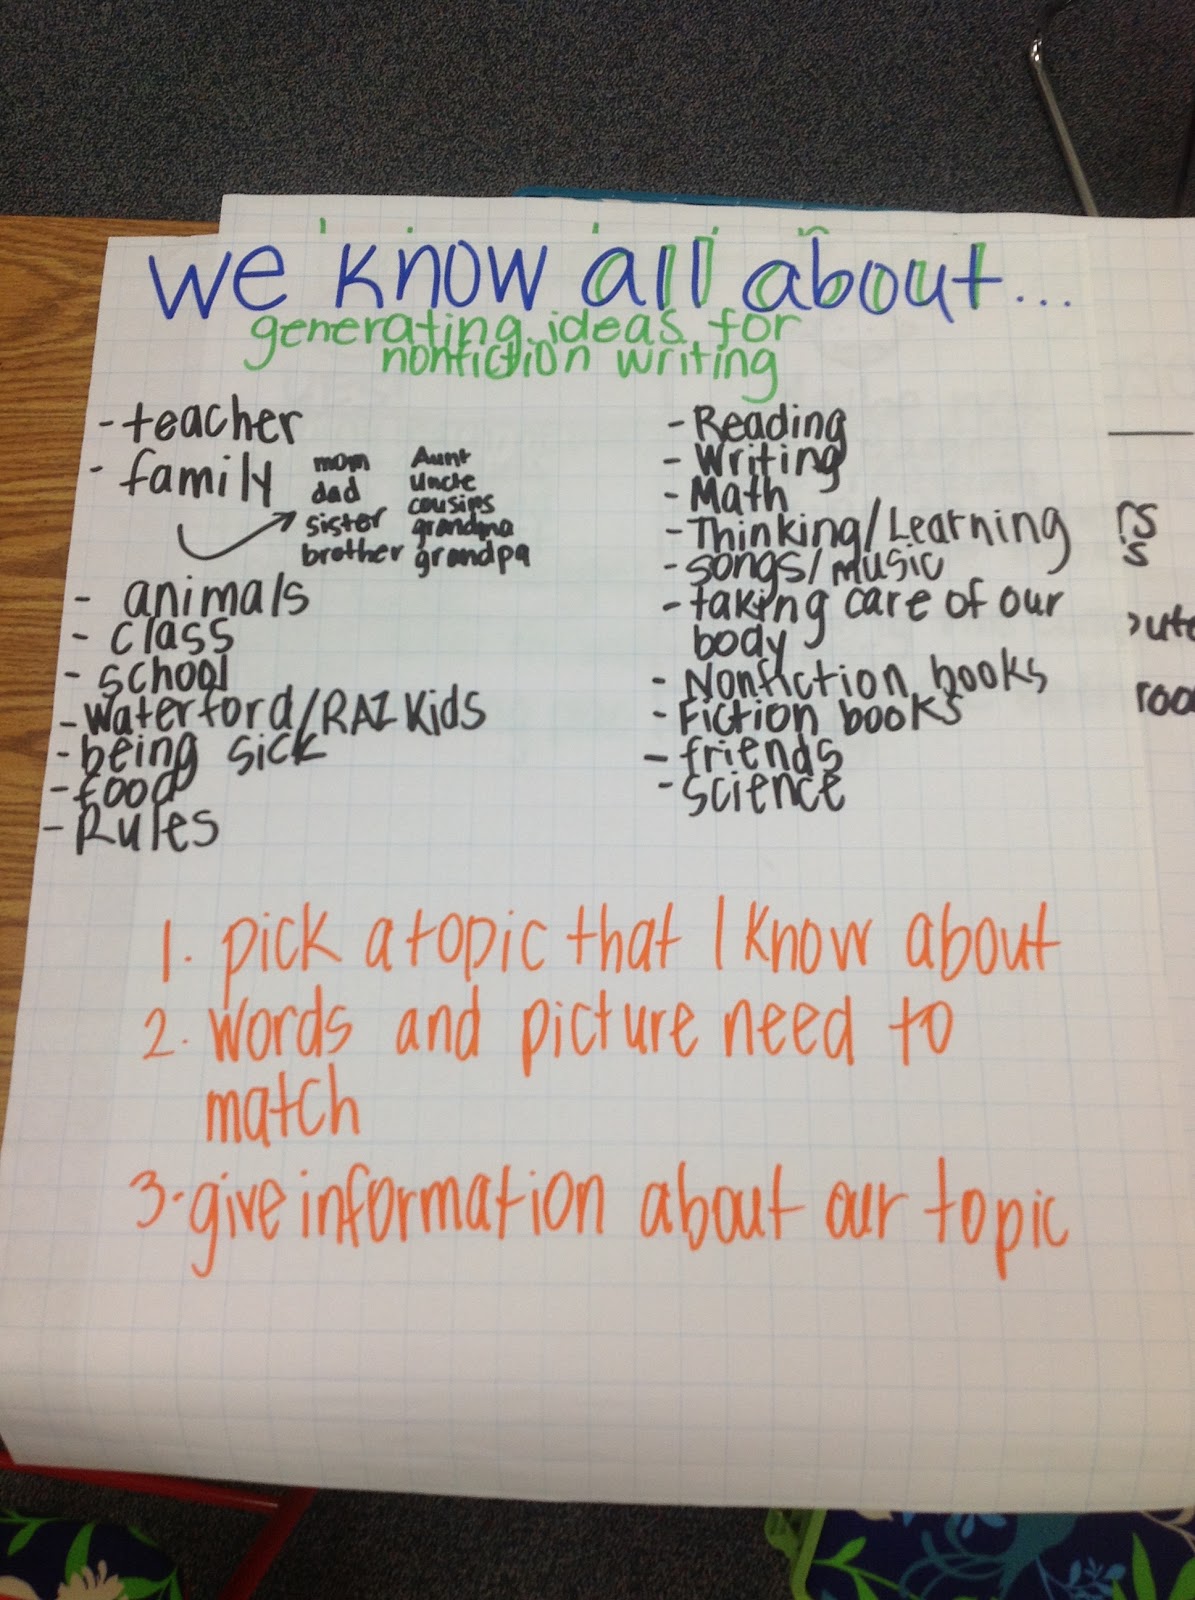 we know all about...
generating ideas for
nonfiction writing
- teacher
- family
mom Aunt
dad uncle
sister cousins
brother grandma
grandpa
- animals
- class
- school
- Waterford/RAZ Kids
- being sick
- food
- Rules
- Reading
- Writing
- Math
- Thinking/Learning
- songs/music
- taking care of our
body
- Nonfiction books
- Fiction books
- friends
- science
1. pick a topic that I know about
2. words and picture need to
match
3. give information about our topic